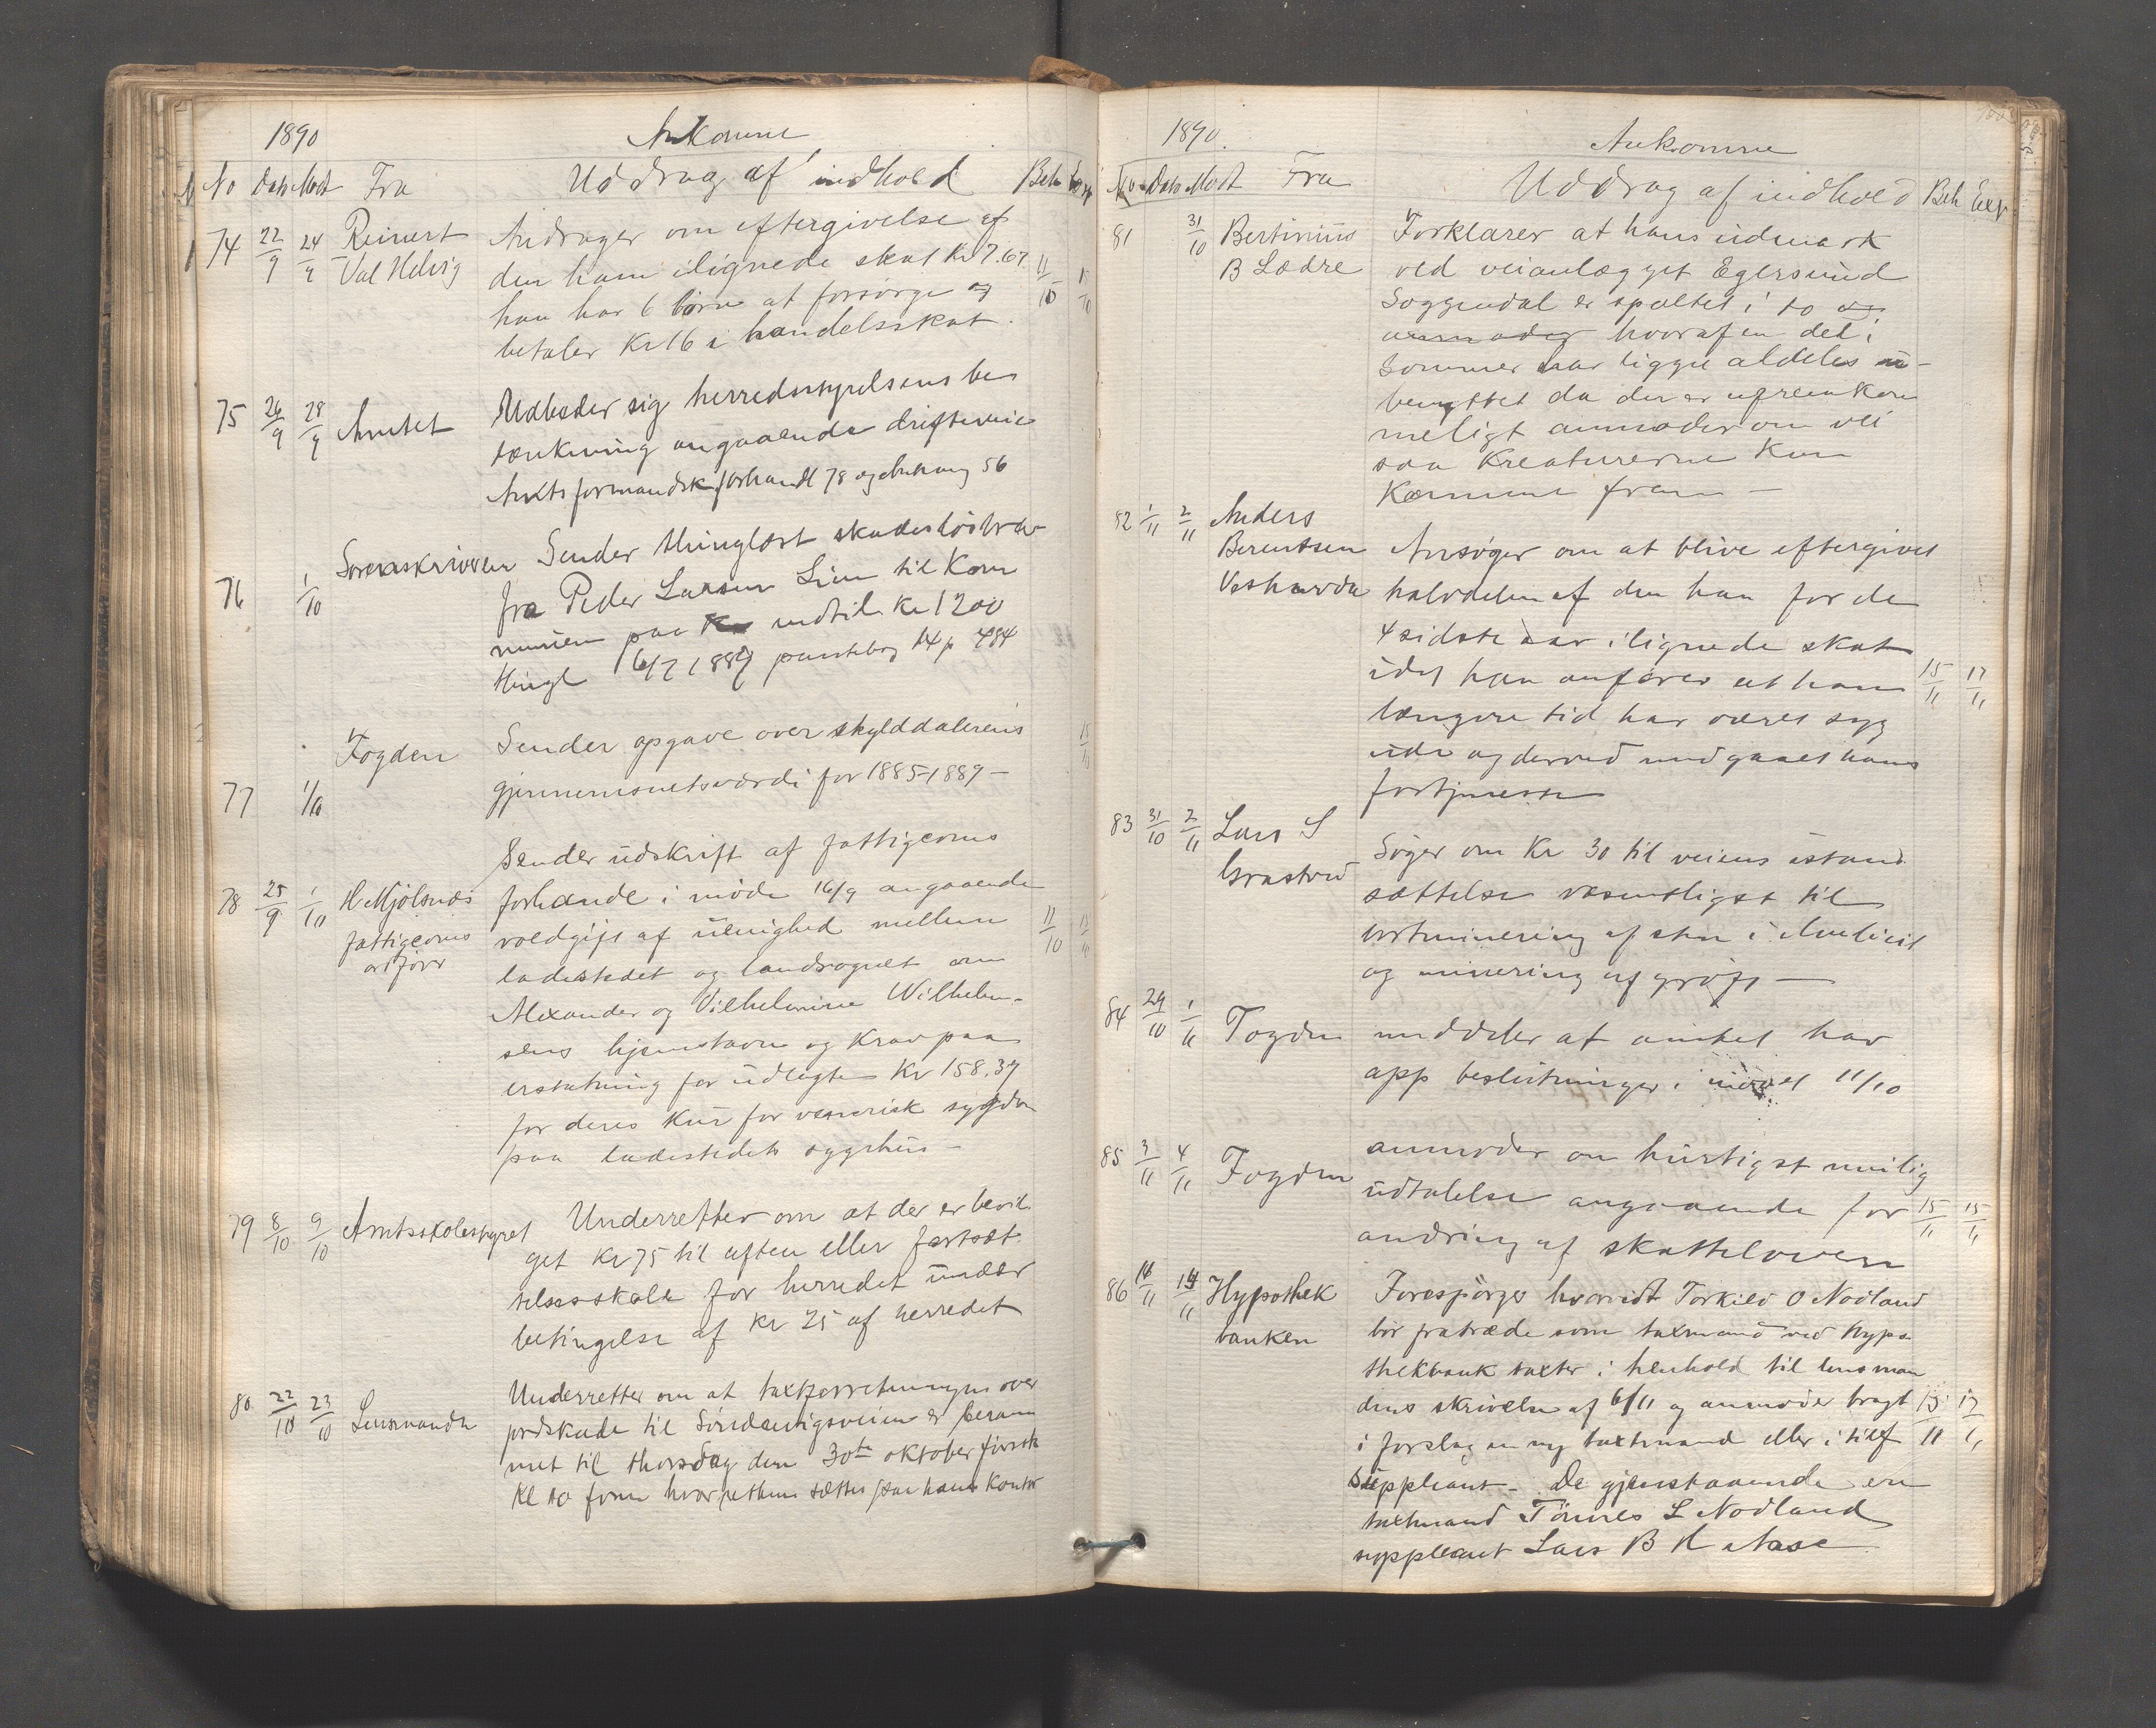 1890 Ankomne
No Dato Modt Fra Uddrag af indhold Beh Exp
74 22/9 24/9 Reinert Andrager om eftergivelse af
Val Helvig den ham ilignede skat Kr 7.67
han har 6 børn at forsørge og 11/10
betaler Kr 16 i handelsskat.
75 26/9 28/9 Amtet Udbeder sig herredsstyrelsens be
tænkning angaaende driftsveie
Amtsformandsk forhandl 78 og 56
76 1/10 Sorenskriveren Sender thinglæst skadesløsbrev
fra Peder Larsen Lien til Kom
munen paa indtil Kr 1200
thingl 16/7 1889 pantebog 14 p 484
77 1/10 Fogden Sender opgave over skylddalerens
gjennemsnitsværdi for 1885-1889 –
Sender udskrift af fattigcoms
78 25/9 1/10 H Mjølsnæs forhandl i møde 16/9 angaaende
fattigcoms voldgift af uenighed mellem 11/10
ordfører ladestedet og landsognet om
Alexander og Vilhelmine Wilhelm-
sens hjemstavn og Krav paa
erstatning for udlagte Kr 158.37
for deres Kur for venerisk sygdom
paa ladestedets sygehus –
79 8/10 9/10 Amtsskolestyret Underretter om at der er bevil
get Kr 75 til aften eller fortsæt
telsesskole for herredet under
betingelse af Kr 25 af herredet
80 22/10 23/10 Lensmanden Underretter om at taxtforretningen over
jordskade til veien er beram
met til thorsdag den 30te oktober førstk
Kl 10 form hvor retten sættes paa hans Kontor
1890. Ankomne
No Dato Modt Fra Uddrag af indhold Beh Exp
81 31/10 Bertinius Forklarer at hans udmark
B Lædre ved veianlægget Egersund
Soggendal er spaltet i to og
anmoder hvoraf en del i
sommer har ligget aldeles u-
benyttet da der er ufremkom
meligt anmoder om vei
saa Kreaturerne Kan
Komme frem –
82 1/11 2/11 Anders
Berentsen Ansøger om at blive eftergivet
halvdelen af den han for de
4 sidste aar ilignede skat
idet han anfører at han 15/11 17/11
længere tid har været syg
og derved undgaaet hans
fortjeneste
83 31/10 2/11 Lars S
Søger om Kr 30 til veiens istand
sættelse væsentligst til
bortminering af sten i
og minering af grøft –
84 29/10 1/11 Fogden meddeler at amtet har
app beslutninger i mødet 11/10
85 3/11 4/11 Fogden anmoder om hurtigst mulig
udtalelse angaaende for 15/11 15/11
andring af skatteloven
86 14/11 Hypothek Forespørger hvorvidt Torkild O Nodland
banken bør fratræde som taxmand ved hypo
thekbank taxter i henhold til lensman
dens skrivelse af 6/11 og anmoder bragt 15/11 17/11
i forslag en ny taxtmand eller i tilf
suppleant – De gjenstaaende er
taxtmand Tønnes L Nodland
suppleant Lars B H Aase